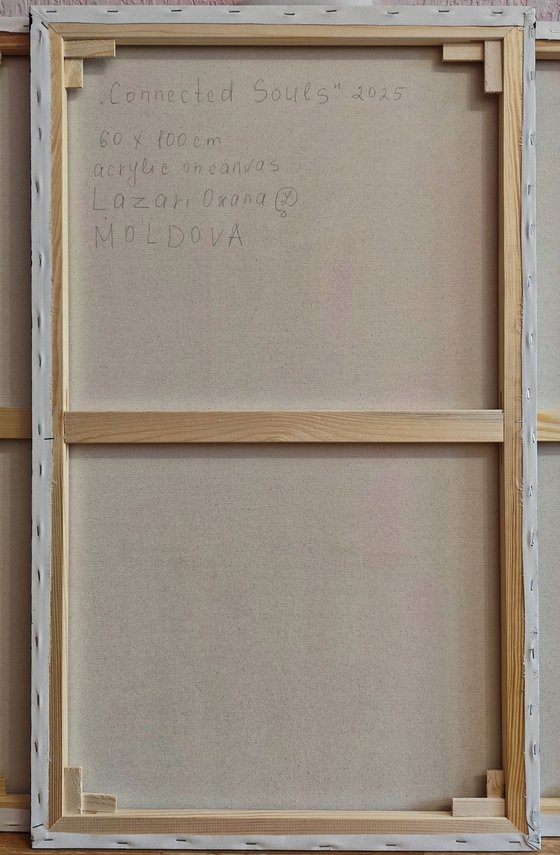 „Connected Souls" 2025
60 x 100 cm
acrylic on canvas
Lazari Oxana
MOLDOVA